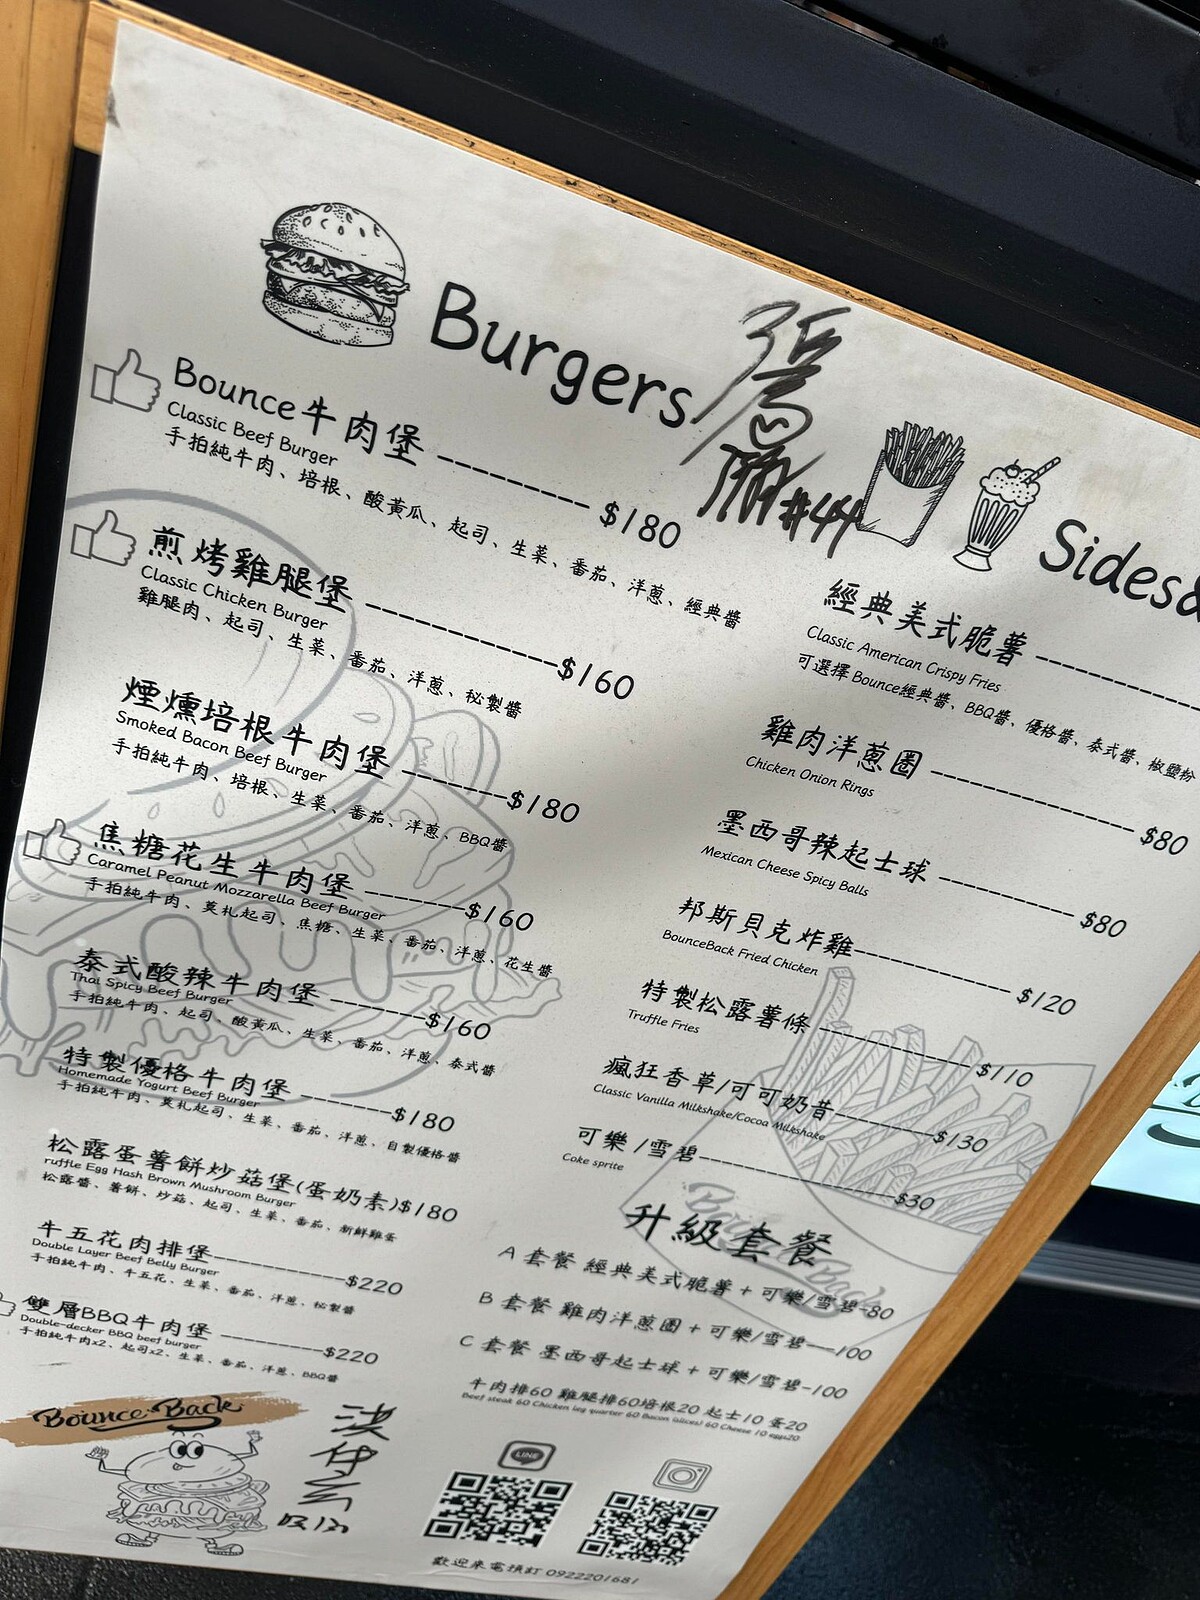 Burgers
Bounce牛肉堡 $180
Classic Beef Burger
手拍純牛肉、培根、酸黃瓜、起司、生菜、番茄、洋蔥、經典醬
煎烤雞腿堡 $160
Classic Chicken Burger
雞腿肉、起司、生菜、番茄、洋蔥、秘製醬
煙燻培根牛肉堡 $180
Smoked Bacon Beef Burger
手拍純牛肉、培根、生菜、番茄、洋蔥、BBQ醬
焦糖花生牛肉堡 $160
Caramel Peanut Mozzarella Beef Burger
手拍純牛肉、莫札起司、焦糖、生菜、番茄、洋蔥、花生醬
泰式酸辣牛肉堡 $160
Thai Spicy Beef Burger
手拍純牛肉、起司、酸黃瓜、生菜、番茄、洋蔥、泰式醬
特製優格牛肉堡 $180
Homemade Yogurt Beef Burger
手拍純牛肉、莫札起司、生菜、番茄、洋蔥、自製優格醬
松露蛋薯餅炒菇堡(蛋奶素)$180
ruffle Egg Hash Brown Mushroom Burger
松露醬、薯餅、炒菇、起司、生菜、番茄、新鮮雞蛋
牛五花肉排堡 $220
Double Layer Beef Belly Burger
手拍純牛肉、牛五花、生菜、番茄、洋蔥、秘製醬
雙層BBQ牛肉堡 $220
Double-decker BBQ beef burger
手拍純牛肉x2、起司x2、生菜、番茄、洋蔥、BBQ醬
Bounce Back
#44
Sides&
經典美式脆薯
Classic American Crispy Fries
可選擇Bounce經典醬、BBQ醬、優格醬、泰式醬、椒鹽粉
雞肉洋蔥圈 $80
Chicken Onion Rings
墨西哥辣起士球 $80
Mexican Cheese Spicy Balls
邦斯貝克炸雞 $120
BounceBack Fried Chicken
特製松露薯條 $110
Truffle Fries
瘋狂香草/可可奶昔 $130
Classic Vanilla Milkshake/Cocoa Milkshake
可樂 /雪碧 $30
Coke sprite
升級套餐
A 套餐 經典美式脆薯 + 可樂/雪碧-80
B 套餐 雞肉洋蔥圈 + 可樂/雪碧—100
C 套餐 墨西哥起士球 + 可樂/雪碧-100
牛肉排60 雞腿排60培根20 起士10 蛋20
Beef steak 60 Chicken leg quarter 60 Bacon (slices) 60 Cheese 10 eggs20
LINE
歡迎來電預訂 0922201681